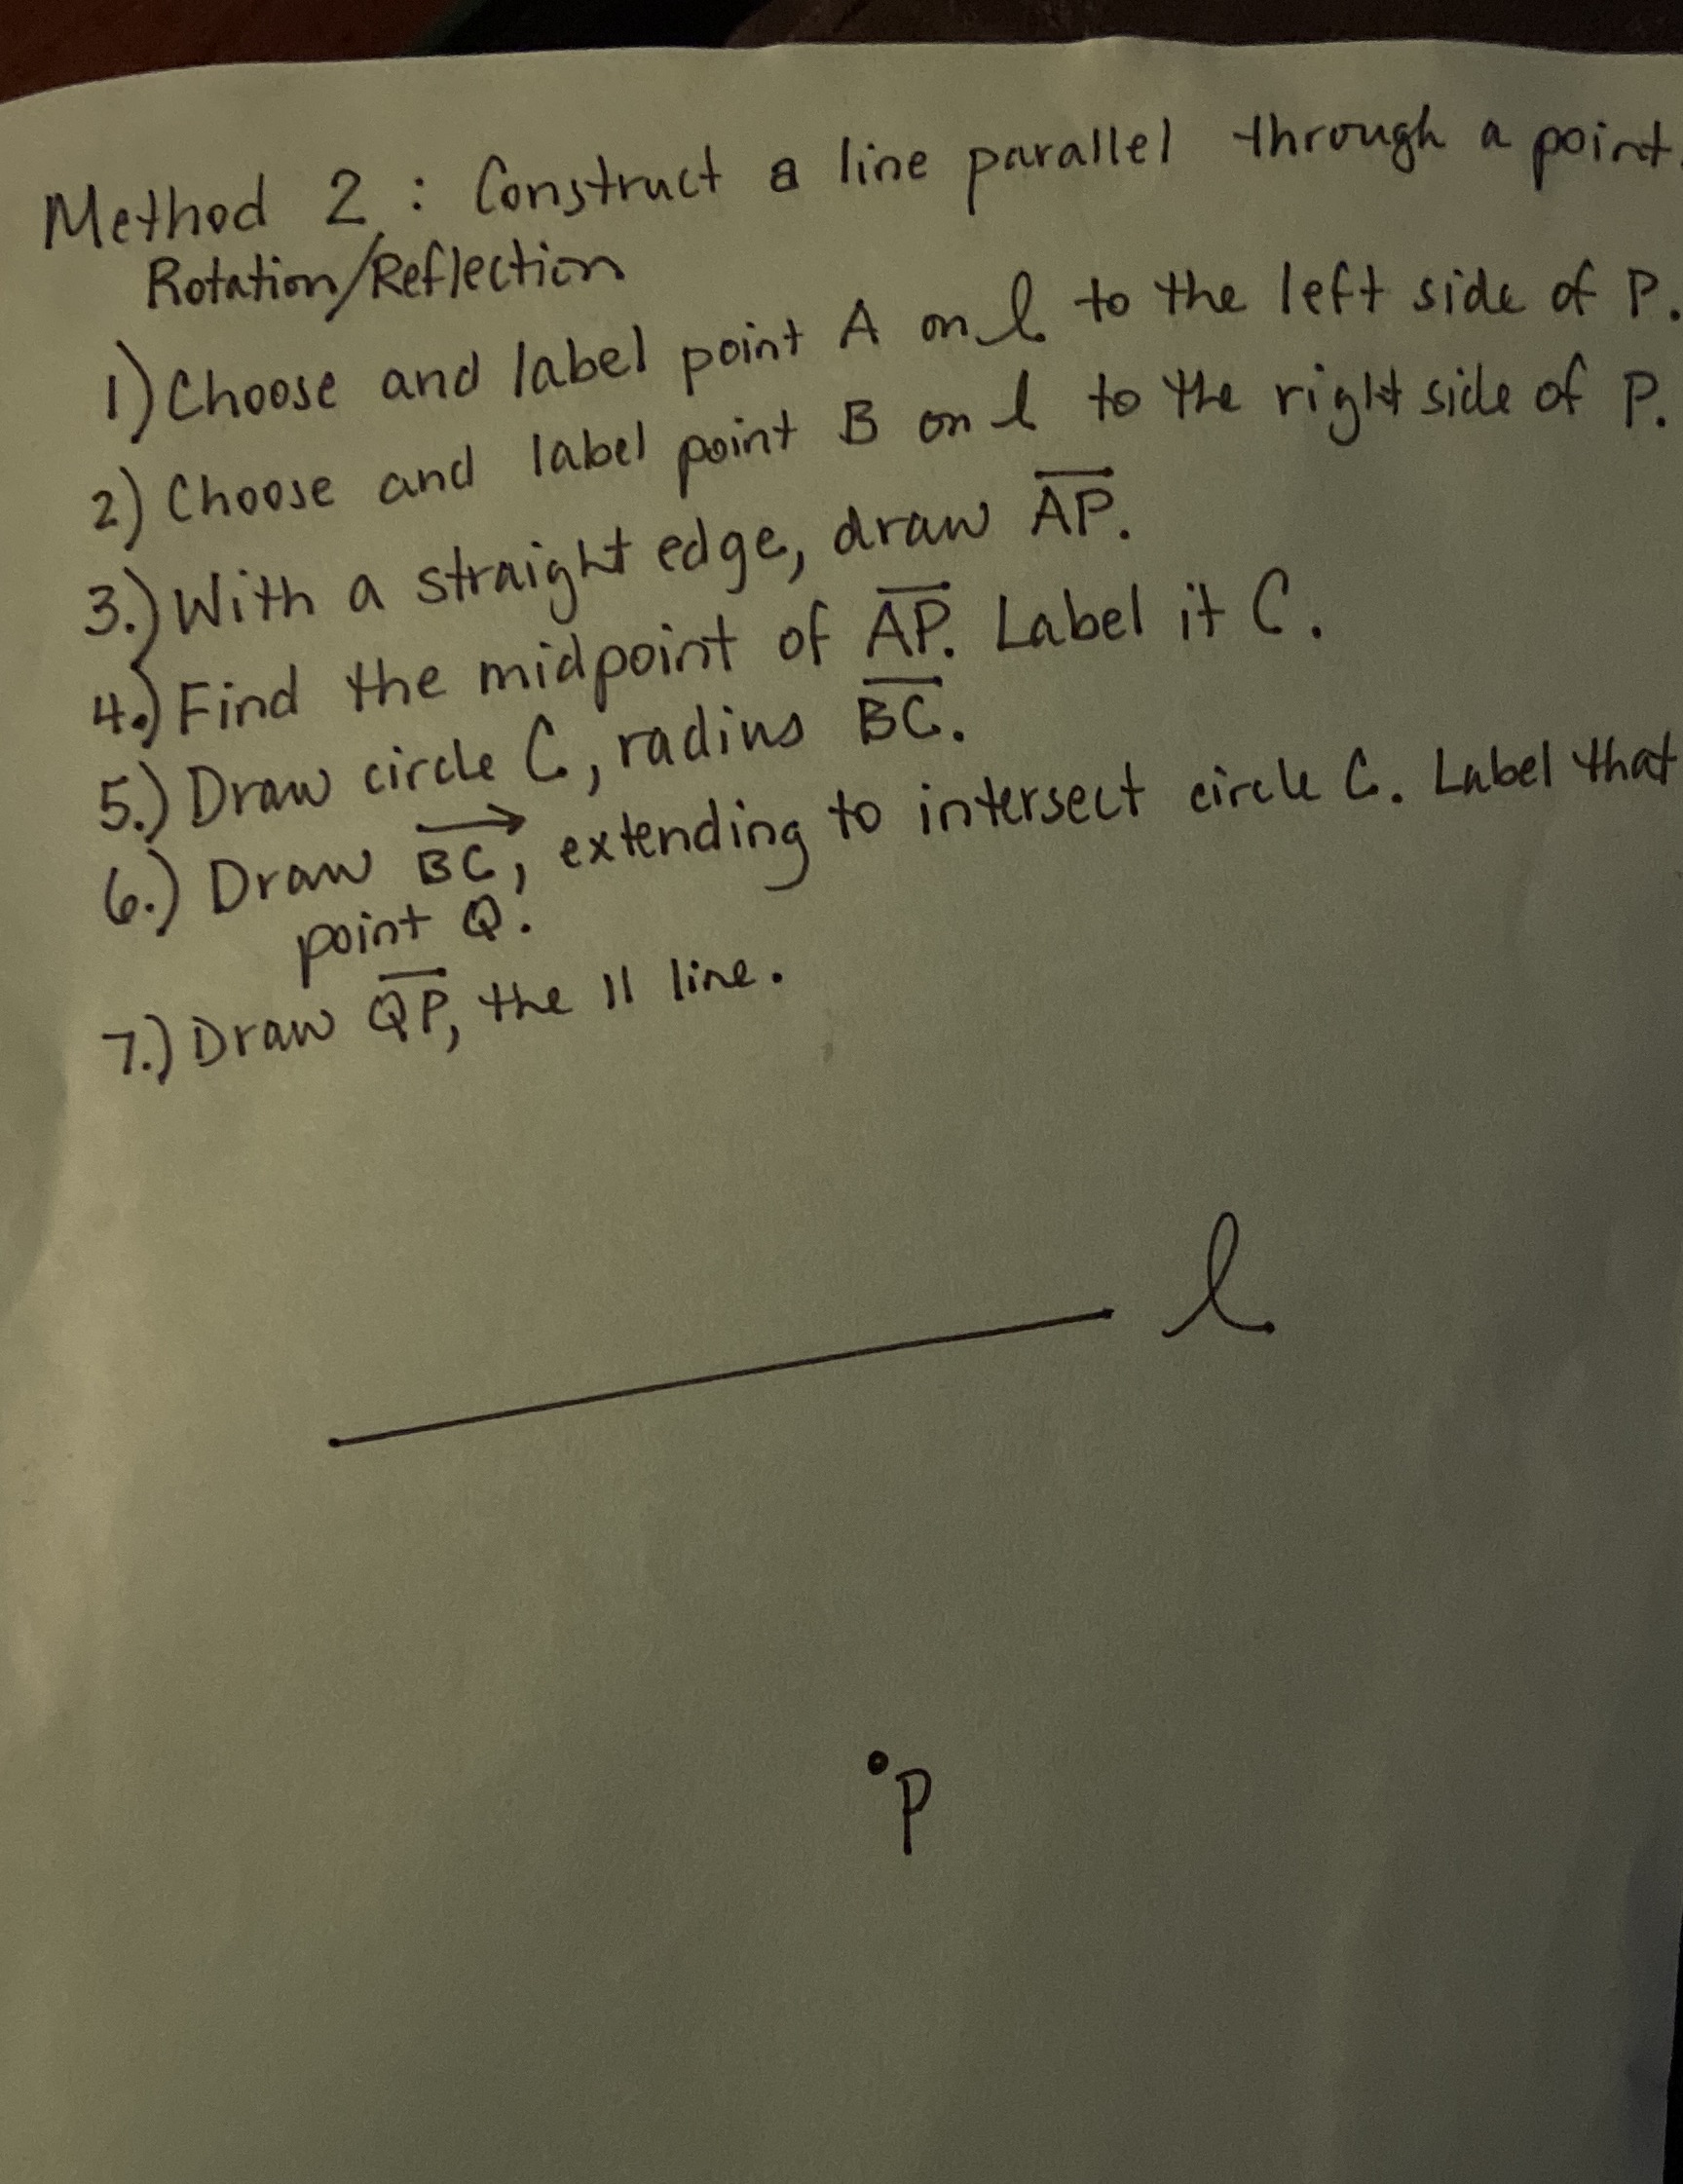 Method 2: Construct a line parallel through a point.
Rotation/Reflection
1) Choose and label point A on l to the left side of P.
2) Choose and label point B on l to the right side of P.
3.) With a straight edge, draw A̅P̅.
4.) Find the midpoint of A̅P̅. Label it C.
5.) Draw circle C, radius B̅C̅.
6.) Draw BC→, extending to intersect circle C. Label that
point Q.
7.) Draw Q̅P̅, the || line.
l
P